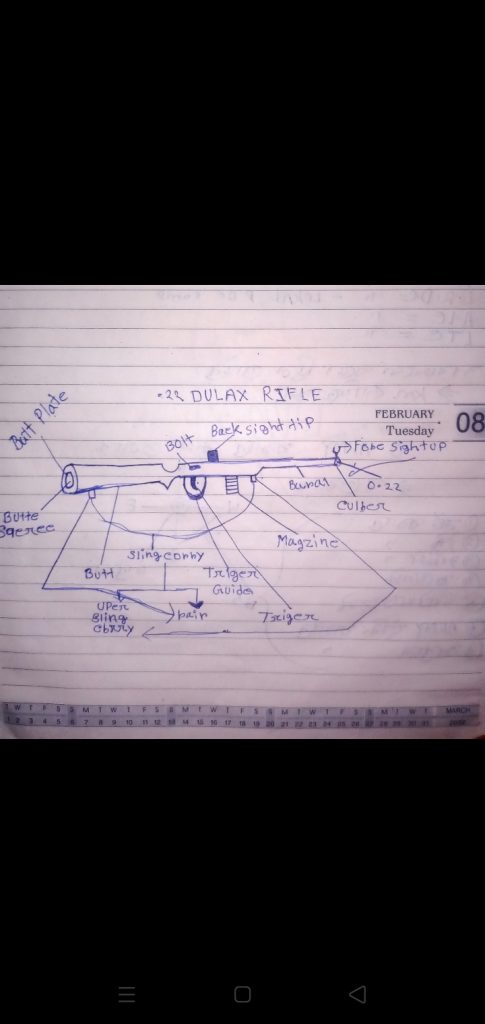 .22 DULAX RIFLE
FEBRUARY
Tuesday
08
Butt Plate
Bolt
Back sight dip
Fore sight up
0.22
Baural
Butte
Culfer
Magzine
Sling corry
Butt
Triger
Guider
UPer
sling
pair
Triger
T W T F S S M T W T F S S M T W T F S S M T W T F S S M T W T MARCH
1 2 3 4 5 6 7 8 9 10 11 12 13 14 15 16 17 18 19 20 21 22 23 24 25 26 27 28 29 30 31